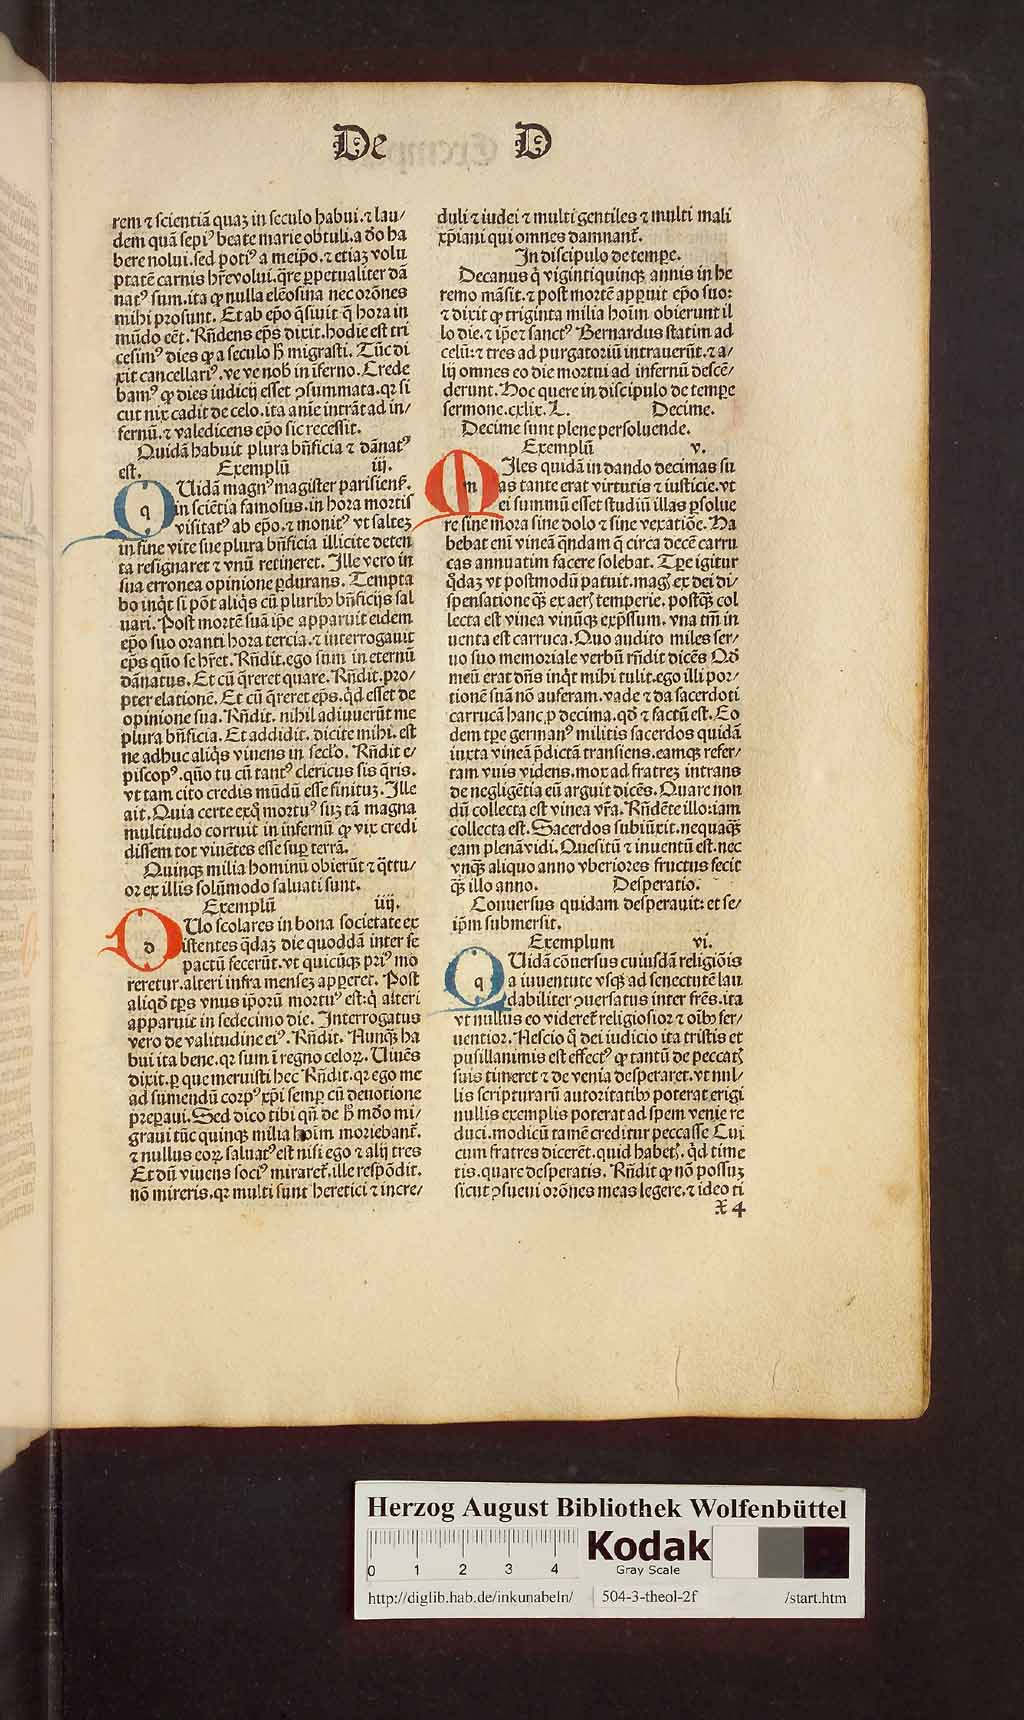 De D
rem ⁊ scientiã quaꝫ in seculo habui.⁊ lau/
dem quã sepiꝰ beate marie obtuli.a dño ha
bere nolui.sed potiꝰ a meip̃o.⁊ etiaꝫ volu
ptatẽ carnis hr̃e volui.q̃re ꝑpetualiter dã
natꝰ sum.ita ꝙ nulla elẽosina nec orõnes
mihi prosunt. Et ab ep̃o q̃siuit ꝙ hora in
mũdo eẽt. Rñdens ep̃s dixit.hodie est tri
cesimꝰ dies ꝙ a seculo h̃ migrasti. Tũc di
xit cancellariꝰ.ve ve nob̃ in iferno. Crede
bamꝰ ꝙ dies iudicij esset ꝯsummata.qꝛ si
cut nix cadit de celo.ita anie intrãt ad in/
fernũ.⁊ valedicens ep̃o sic recessit.
Quidã habuit plura bñficia ⁊ dãnatꝰ
est. Exemplũ iij.
QUidã magnꝰ magister parisienẽ.
in sciẽtia famosus.in hora mortis
visitatꝰ ab ep̃o.⁊ monitꝰ vt salteꝫ
in fine vite sue plura bñficia illicite deten
ta resignaret ⁊ vnũ retineret. Ille vero in
sua erronea opinione ꝑdurans. Tempta
bo inq̃t si põt aliq̃s cũ pluribꝰ bñficijs sal
uari. Post mortẽ suã ip̃e apparuit eidem
ep̃o suo oranti hora tercia.⁊ interrogauit
ep̃s quõ se hr̃et. Rñdit.ego sum in eternũ
dãnatus. Et cũ q̃reret quare. Rñdit.pro/
pter elationẽ. Et cũ q̃reret ep̃s.q̃d esset de
opinione sua. Rñdit. nihil adiuuerũt me
plura bñficia. Et addidit. dicite mihi. est
ne adhuc aliq̃s viuens in sec̃lo. Rñdit e/
piscopꝰ.quõ tu cũ tantꝰ clericus sis q̃ris.
vt tam cito credis mũdũ esse finituꝫ. Ille
ait. Quia certe exq̃ mortuꝰ suꝫ tã magna
multitudo corruit in infernũ ꝙ vix credi
dissem tot viuẽtes esse suꝑ terrã.
Quinqꝫ milia hominũ obierũt ⁊ q̃ttu/
or ex illis solũmodo saluati sunt.
Exemplũ iiij.
DUo scolares in bona societate ex
istentes q̃daꝫ die quoddã inter se
pactũ fecerũt.vt quicũqꝫ priꝰ mo
reretur.alteri infra menseꝫ apꝑeret. Post
aliqd̃ tp̃s vnus ip̃orũ mortuꝰ est:q̃ alteri
apparuit in sedecimo die. Interrogatus
vero de valitudine eiꝰ. Rñdit. Nunqꝫ ha
bui ita bene.qꝛ sum i regno celoꝝ. Uiuẽs
dixit.ꝑ que meruisti hec Rñdit.qꝛ ego me
ad sumendũ corpꝰ xp̃i semꝑ cũ deuotione
preꝑaui. Sed dico tibi qñ de h̃ mũdo mi/
graui tũc quinqꝫ milia hoim moriebant̃.
⁊ nullus eoꝝ saluatꝰ est nisi ego ⁊ alij tres
Et dũ viuens sociꝰ miraret̃.ille respõdit.
nõ mireris.qꝛ multi sunt heretici ⁊ incre/
duli ⁊ iudei ⁊ multi gentiles ⁊ multi mali
xp̃iani qui omnes damnant̃.
In discipulo de tempe.
Decanus q̃ vigintiquinqꝫ annis in he
remo mãsit.⁊ post mortẽ apꝑuit ep̃o suo:
⁊ dixit ꝙ triginta milia hoim obierunt il
lo die.⁊ ip̃e ⁊ sanctꝰ Bernardus statim ad
celũ:⁊ tres ad purgatoriũ intrauerũt.⁊ a/
lij omnes eo die mortui ad infernũ descẽ/
derunt. Hoc quere in discipulo de tempe
sermone.cxlix.L. Decime.
Decime sunt plene persoluende.
Exemplũ v.
MIles quidã in dando decimas su
as tante erat virtutis ⁊ iusticie.vt
ei summũ esset studiũ illas ꝑsolue
re sine mora sine dolo ⁊ sine vexatiõe. Ha
bebat enĩ vineã q̃ndam q̃ circa decẽ carru
cas annuatim facere solebat. Tp̃e igitur
q̃daꝫ vt postmodũ patuit.magꝭ ex dei di/
spensatione qꝫ ex aerꝭ temperie. postqꝫ col
lecta est vinea vinũqꝫ exp̃ssum. vna tm̃ in
uenta est carruca. Quo audito miles ser/
uo suo memoriale verbũ rñdit dicẽs Qd̃
meũ erat dñs inq̃t mihi tulit.ego illi por/
tionẽ suã nõ auferam.vade ⁊ da sacerdoti
carrucã hanc ꝓ decima.qd̃ ⁊ factũ est. Eo
dem tp̃e germanꝰ militis sacerdos quidã
iuxta vineã p̃dictã transiens.eamqꝫ refer/
tam vuis videns.mox ad fratreꝫ intrans
de negligẽtia eũ arguit dicẽs. Quare non
dũ collecta est vinea vr̃a. Rñdẽte illo:iam
collecta est. Sacerdos subiũxit.nequaqꝫ
eam plenã vidi. Quesitũ ⁊ inuentũ est.nec
vnqꝫ aliquo anno vberiores fructus fecit
qꝫ illo anno. Desperatio.
Conuersus quidam desperauit: et se/
ip̃m submersit.
Exemplum vi.
QUidã cõuersus cuiusdã religiõis
a iuuentute vsqꝫ ad senectutẽ lau
dabiliter ꝯuersatus inter fr̃es.ita
vt nullus eo videret̃ religiosior ⁊ oĩbꝰ fer/
uentior. Nescio q̃ dei iudicio ita tristis et
pusillanimis est effectꝰ ꝙ tantũ de peccatꝭ
suis timeret ⁊ de venia desperaret.vt nul/
lis scripturarũ autoritatibꝰ poterat erigi
nullis exemplis poterat ad spem venie re
duci.modicũ tamẽ creditur peccasse Cui
cum fratres dicerẽt.quid habetꝭ.q̃d time
tis.quare desperatis. Rñdit ꝙ nõ possuꝫ
sicut ꝯsueui orõnes meas legere.⁊ ideo ti
X 4
Herzog August Bibliothek Wolfenbüttel
0 1 2 3 4
Kodak
Gray Scale
http://diglib.hab.de/inkunabeln/ 504-3-theol-2f /start.htm